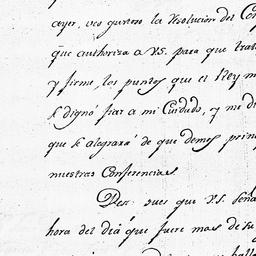 ayer, veo gustoso la resolucion del Con
que authoriza a VS. para que trat
y firme, los puntos que el Rey m
se dignó fiar a mi Cuidado, y me di
que se alegrará de que demos prin
nuestras Conferencias.
pues que VS. seña
hora del dia que fuere mas de su